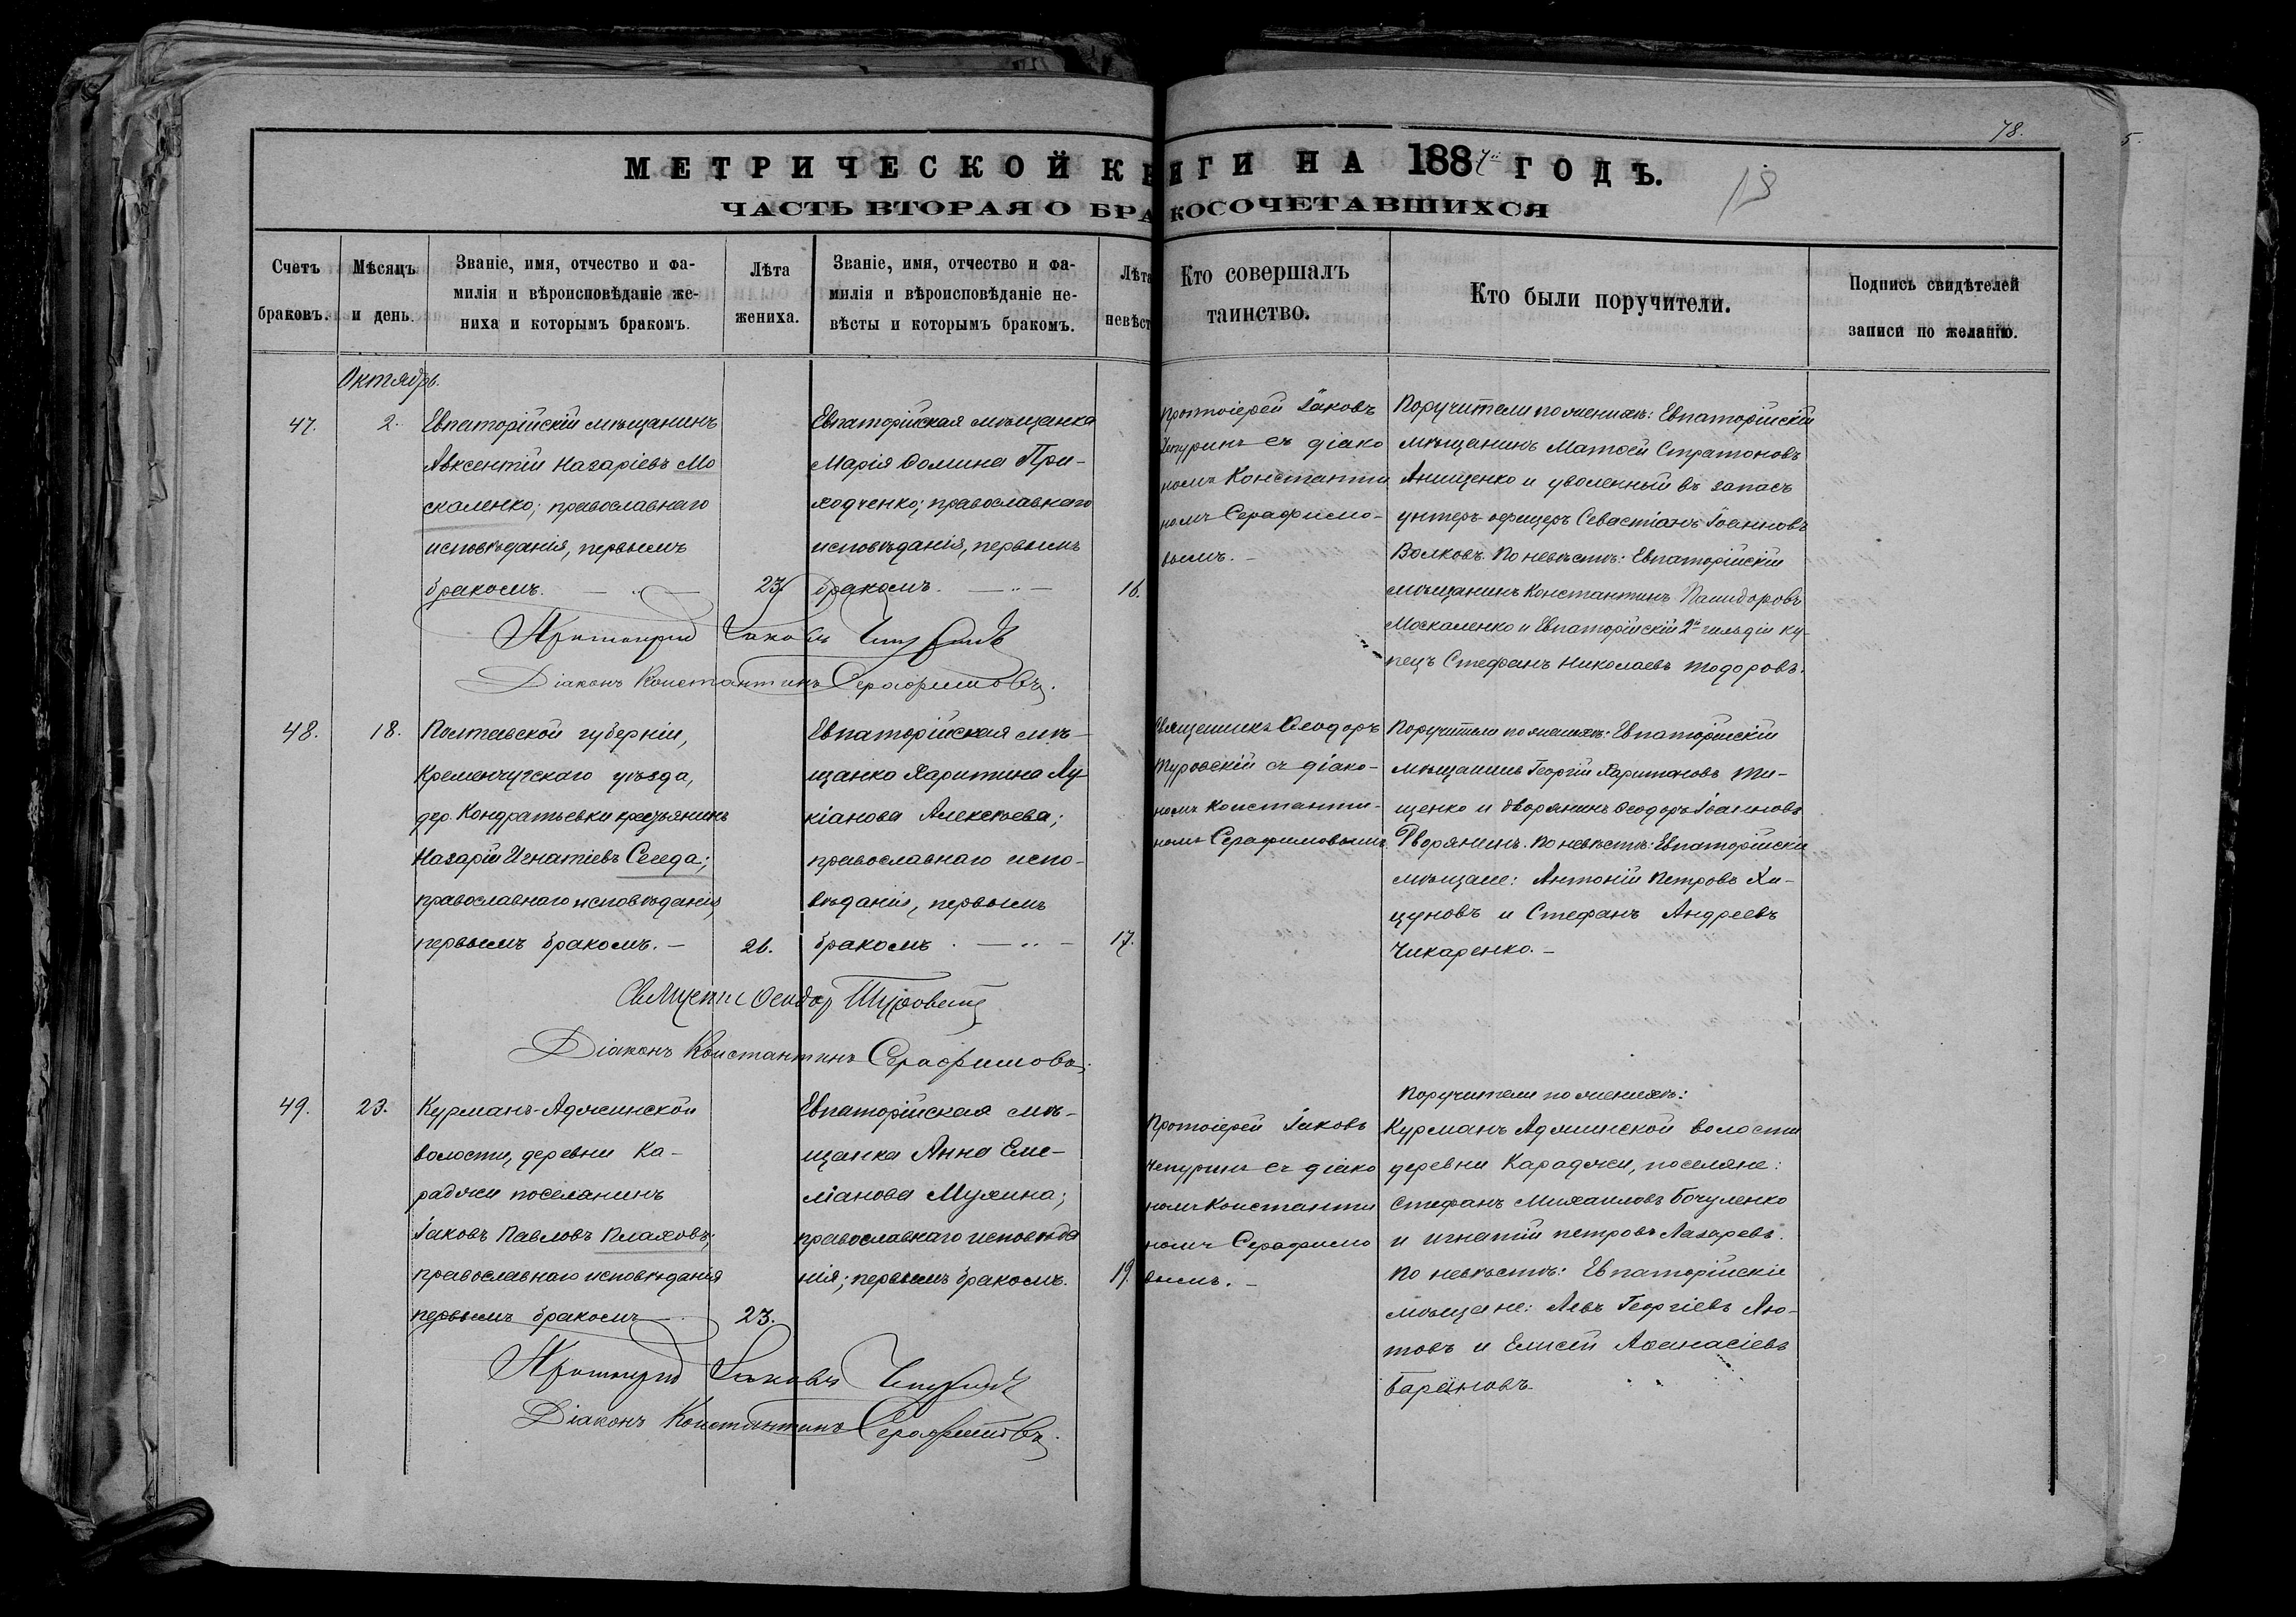 78.
5.
МЕТРИЧЕСКОЙ КНИГИ НА 1887й ГОДЪ.
ЧАСТЬ ВТОРАЯ О БРАКОСОЧЕТАВШИХСЯ
Счетъ
браковъ.
Мѣсяцъ
и день.
Званіе, имя, отчество и фа-
милія и вѣроисповѣданіе же-
ниха и которымъ бракомъ.
Лѣта
жениха.
Званіе, имя, отчество и фа-
милія и вѣроисповѣданіе не-
вѣсты и которымъ бракомъ.
Лѣта
невѣст
Кто совершалъ
таинство.
Кто были поручители.
Подпись свидѣтелей
записи по желанію.
Октябрь.
47.
2.
Евпаторійскій мѣщанинъ
Авксентій Назаріевъ Мо
скаленко; православнаго
исповѣданія, первымъ
бракомъ.
23.
Евпаторійская мѣщанка
Марія Ѳомина При-
ходченко; православнаго
исповѣданія, первымъ
бракомъ.
16.
Протоіерей Іаковъ
Чепуринъ съ діако
номъ Константи
номъ Серафимо-
вымъ.
Поручители по женихѣ: Евпаторійскій
мѣщанинъ Матѳей Стратоновъ
Анищенко и уволенный въ запасъ
унтеръ-офицеръ Севастіанъ Іоанновъ
Волковъ. По невѣстѣ: Евпаторійскій
мѣщанинъ Константинъ
Москаленко и Евпаторійскій 2й гильдіи ку-
пецъ Стефанъ Николаевъ Тодоровъ.
Протоіерей Іаковъ Чепуринъ
Діаконъ Константинъ Серафимовъ.
48.
18.
Полтавской губерніи,
Кременчугскаго уѣзда,
дер. Кондратьевки крестьянинъ
Назарій Игнатіевъ Середа;
православнаго исповѣданія,
первымъ бракомъ.
26.
Евпаторійская мѣ-
щанка Харитина Лу
кіанова Алексѣева;
православнаго испо-
вѣданія, первымъ
бракомъ.
17.
Священникъ Ѳеодоръ
Туровскій съ діако-
номъ Константи-
номъ Серафимовымъ.
Поручители по женихѣ: Евпаторійскій
мѣщанинъ Георгій Харитоновъ Ти-
щенко и дворянинъ Ѳеодоръ Іоанновъ
Дворянинъ. По невѣстѣ: Евпаторійскіе
мѣщане: Антоній Петровъ Ха-
цуновъ и Стефанъ Андреевъ
Чикаренко.
Священникъ Ѳеодоръ Туровскій
Діаконъ Константинъ Серафимовъ.
49.
23.
Курманъ-Аджинской
волости, деревни Ка-
раджи поселянинъ
Іаковъ Павловъ Плаховъ;
православнаго исповѣданія
первымъ бракомъ
23.
Евпаторійская мѣ-
щанка Анна Еме-
ліанова Мухина;
православнаго исповѣда
нія; первымъ бракомъ.
19.
Протоіерей Іаковъ
Чепуринъ съ діако
номъ Константи
номъ Серафимо
вымъ.
Поручители по женихѣ:
Курманъ Аджинской волости
деревни Караджи, поселяне:
Стефанъ Михаиловъ Бочуленко
и Игнатій Петровъ Лазаревъ.
По невѣстѣ: Евпаторійскіе
мѣщане: Левъ Георгіевъ Лю-
товъ и Елисей Аѳанасіевъ
Барановъ
Протоіерей Іаковъ Чепуринъ
Діаконъ Константинъ Серафимовъ.